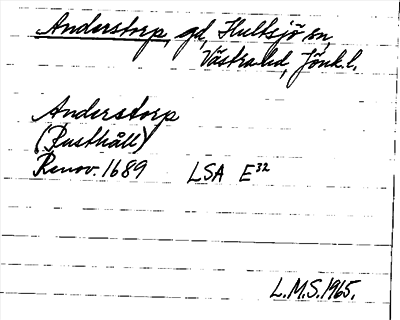 Anderstorp, gd, Hultsjö sn,
Västra hd, Jönk. l.
Anderstorp
(Rusthåll)
Renov. 1689 LSA E³²
L.M.S. 1965.